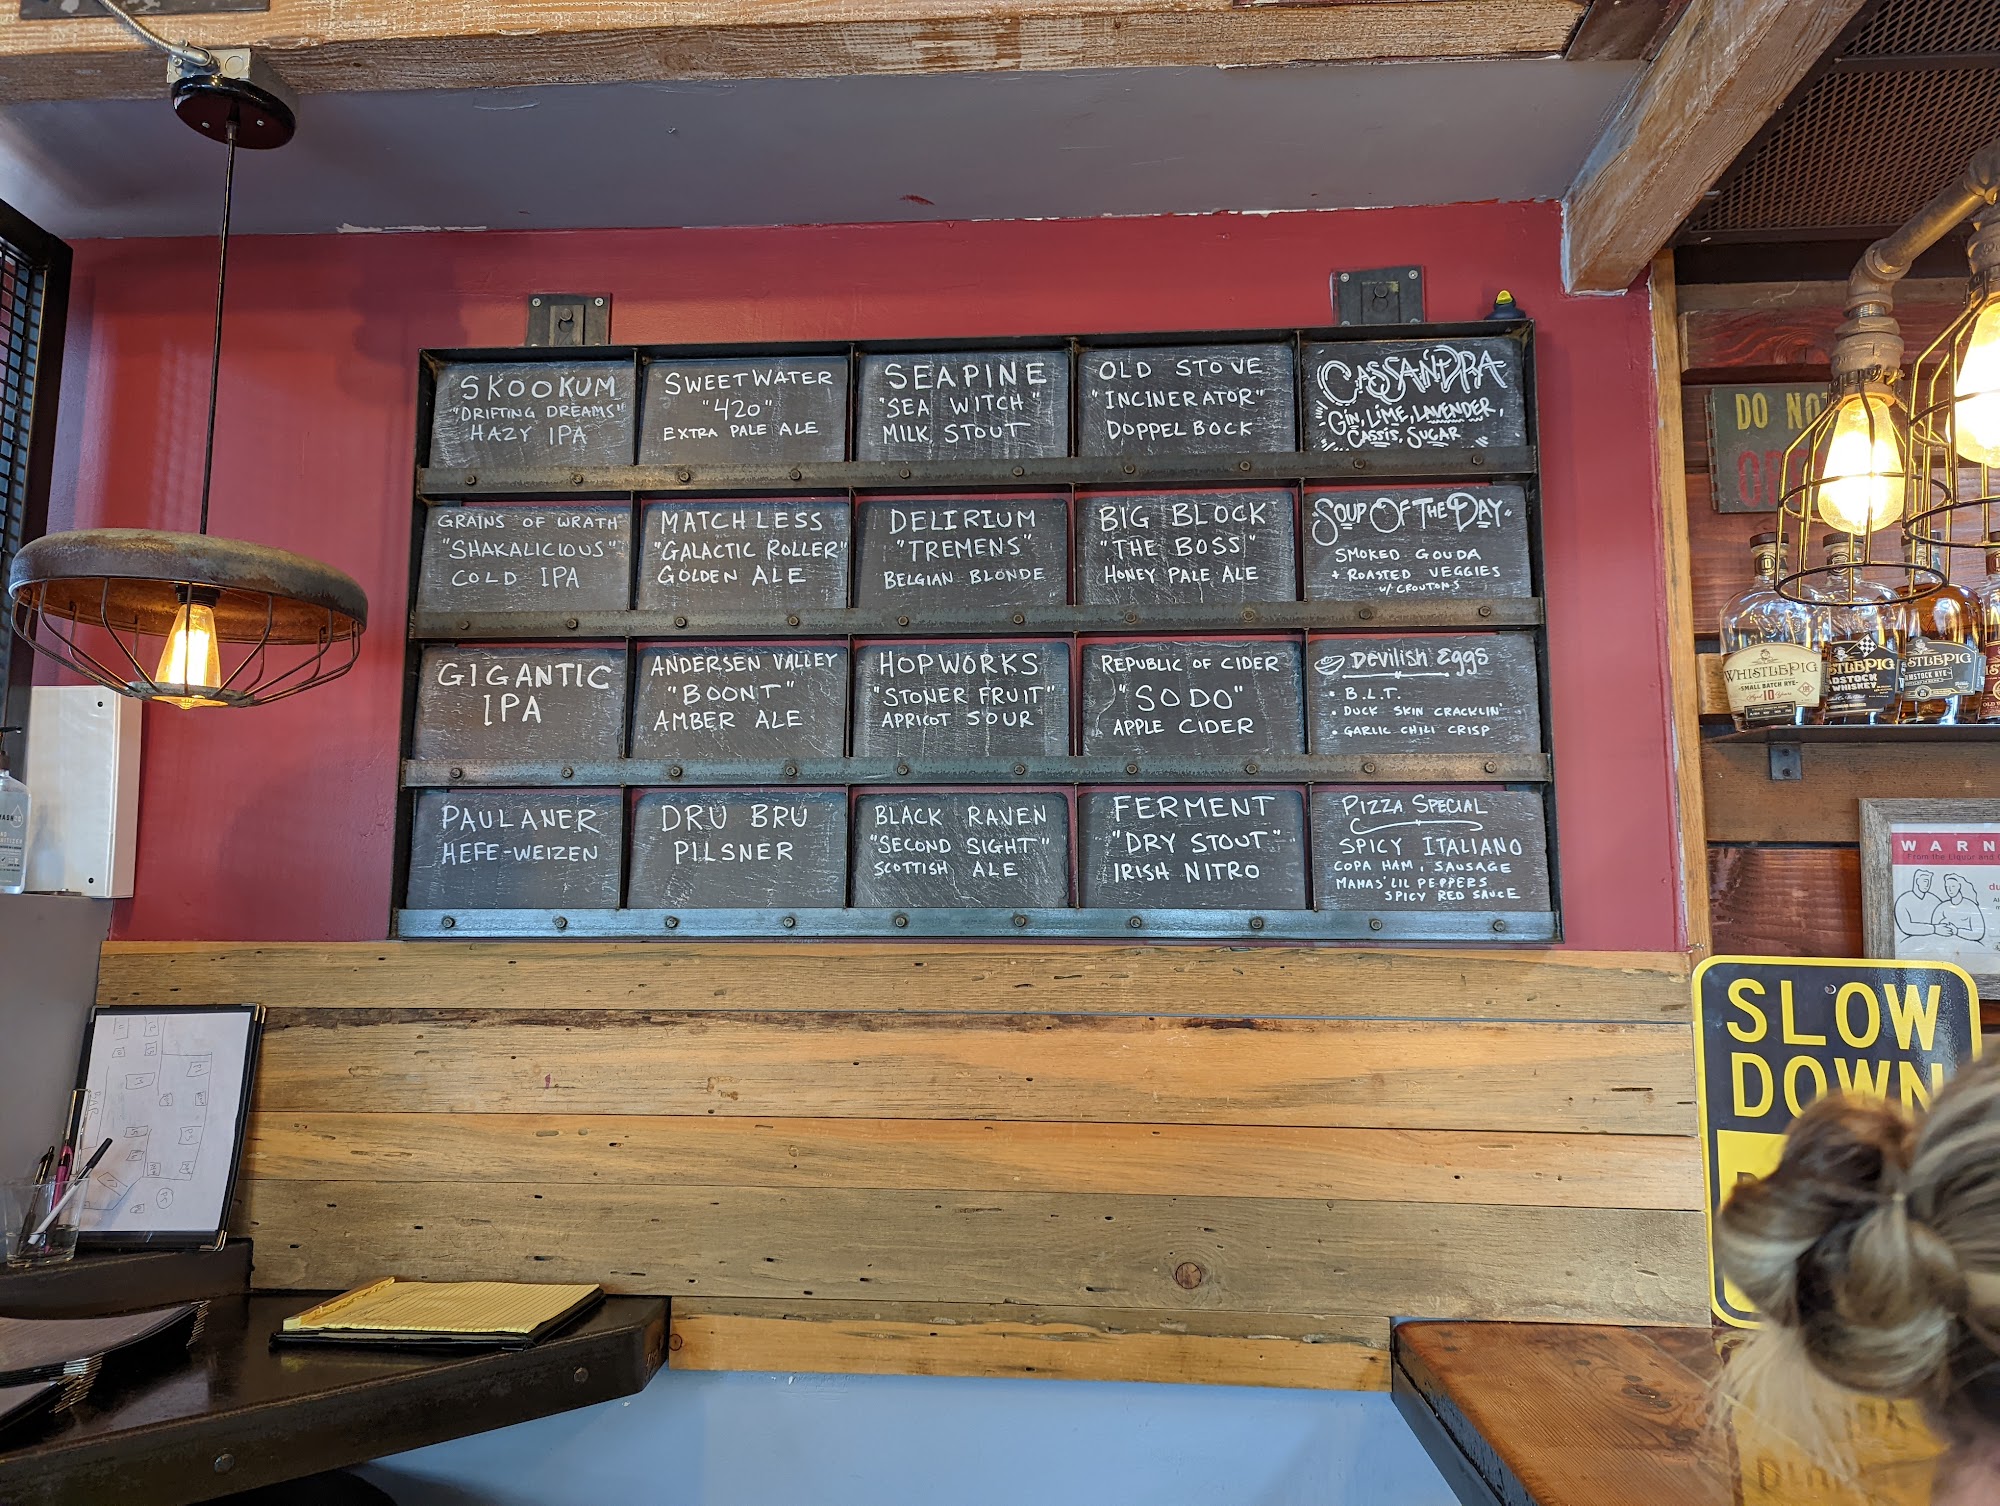 SKOOKUM
"DRIFTING DREAMS"
HAZY IPA
SWEETWATER
"420"
EXTRA PALE ALE
SEAPINE
"SEA WITCH"
MILK STOUT
OLD STOVE
"INCINERATOR"
DOPPELBOCK
CASSANDRA
GIN, LIME, LAVENDER,
CASSIS, SUGAR
GRAINS OF WRATH
"SHAKALICIOUS"
COLD IPA
MATCHLESS
"GALACTIC ROLLER"
GOLDEN ALE
DELIRIUM
"TREMENS"
BELGIAN BLONDE
BIG BLOCK
"THE BOSS"
HONEY PALE ALE
SOUP OF THE DAY
SMOKED GOUDA
+ ROASTED VEGGIES
W/ CROUTONS
GIGANTIC
IPA
ANDERSEN VALLEY
"BOONT"
AMBER ALE
HOPWORKS
"STONER FRUIT"
APRICOT SOUR
REPUBLIC OF CIDER
"SODO"
APPLE CIDER
DEVILISH EGGS
• B.L.T.
• DUCK SKIN CRACKLIN'
• GARLIC CHILI CRISP
PAULANER
HEFE-WEIZEN
DRU BRU
PILSNER
BLACK RAVEN
"SECOND SIGHT"
SCOTTISH ALE
FERMENT
"DRY STOUT"
IRISH NITRO
PIZZA SPECIAL
SPICY ITALIANO
COPA HAM, SAUSAGE
MAMAS' LIL PEPPERS
SPICY RED SAUCE
DO NO
WHISTLEPIG
SMALL BATCH RYE
10
STLEPIG
WHISKEY
STLEPIG
WARN
From the Liquor and
SLOW
DOWN